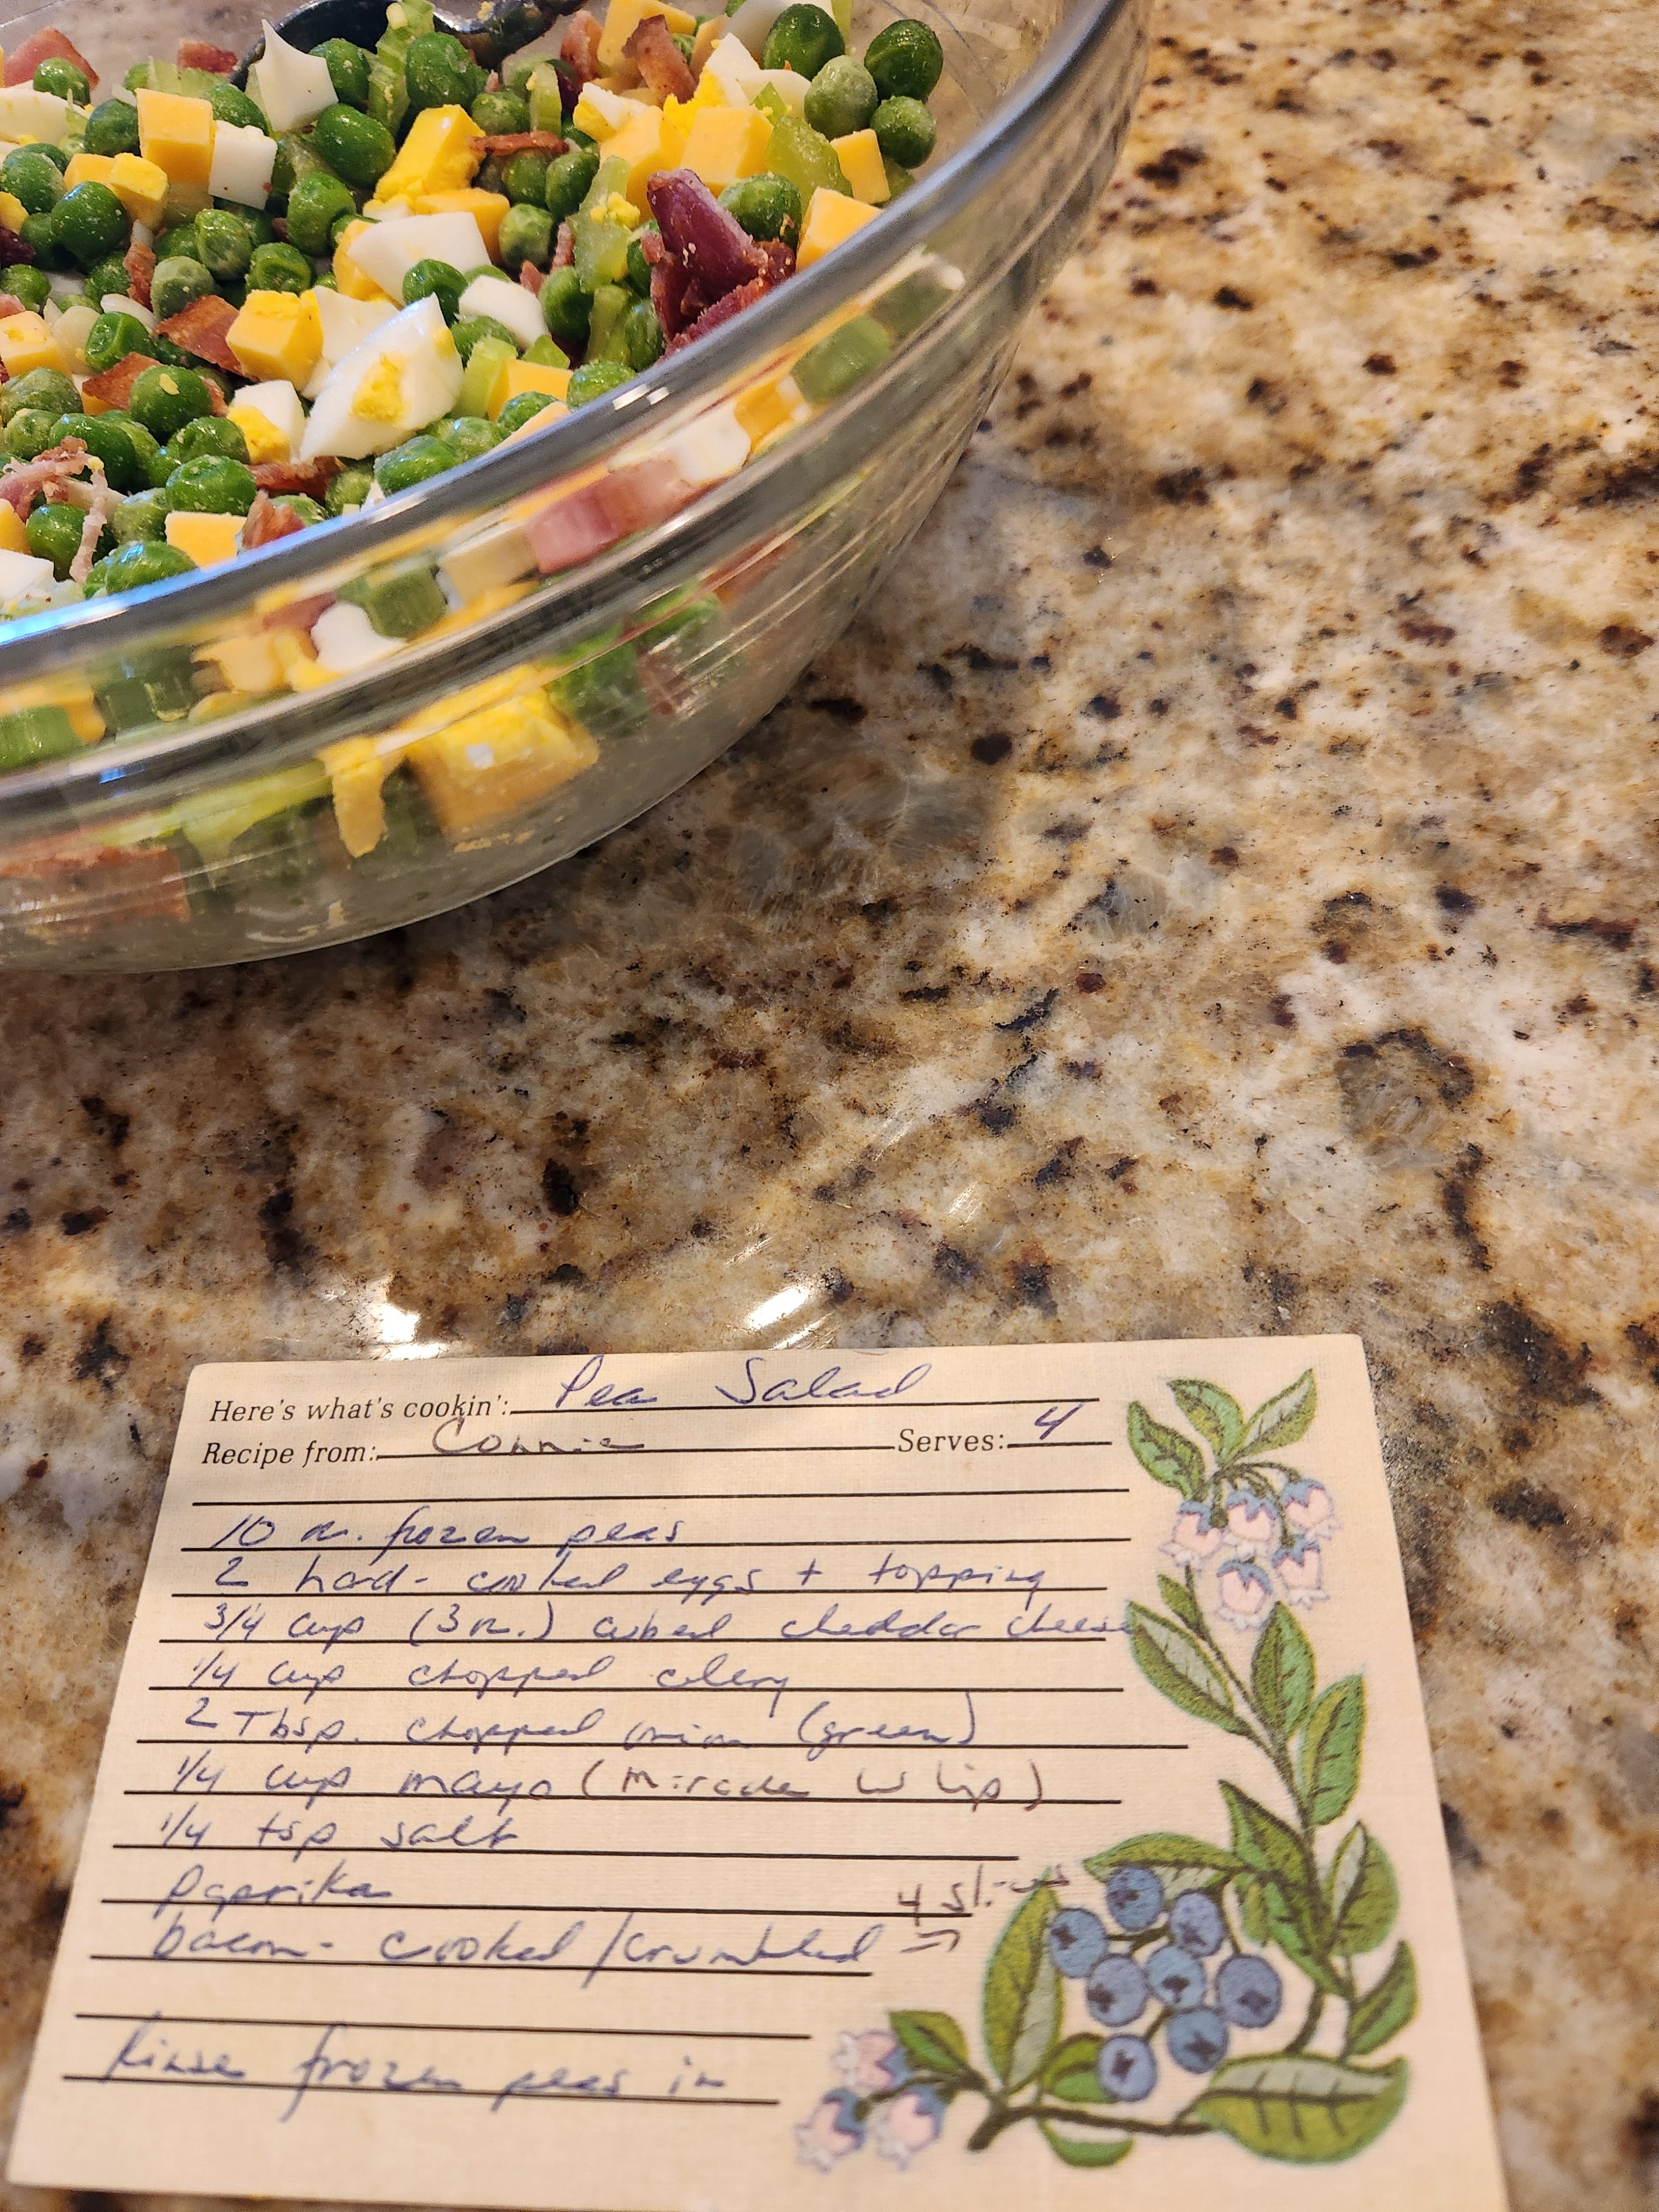 Here's what's cookin': Pea Salad
Recipe from: Connie Serves: 4
10 oz. frozen peas
2 hard-cooked eggs + topping
3/4 cup (3 oz.) cubed cheddar cheese
1/4 cup chopped celery
2 Tbsp. chopped onion (green)
1/4 cup mayo (Miracle Whip)
1/4 tsp salt
Paprika
4 slices
bacon - cooked/crumbled =
Rinse frozen peas in